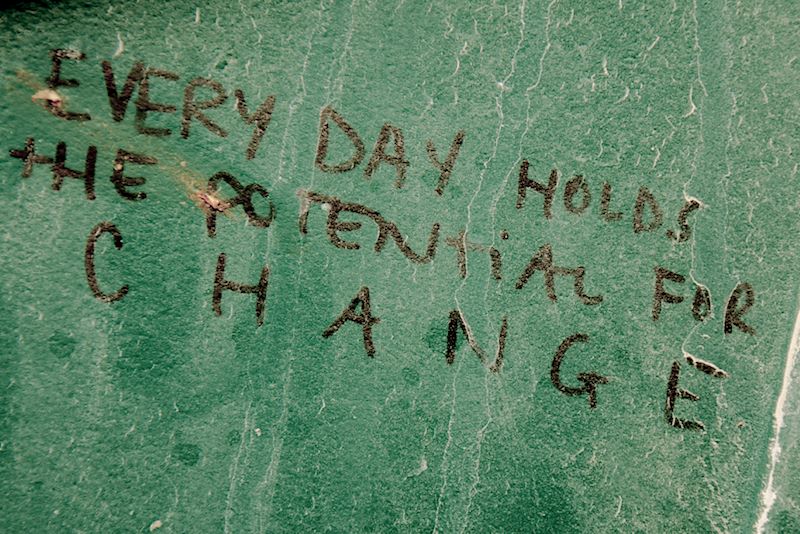 EVERY DAY HOLDS
tHE POTENtiAL FOR
CHANGE